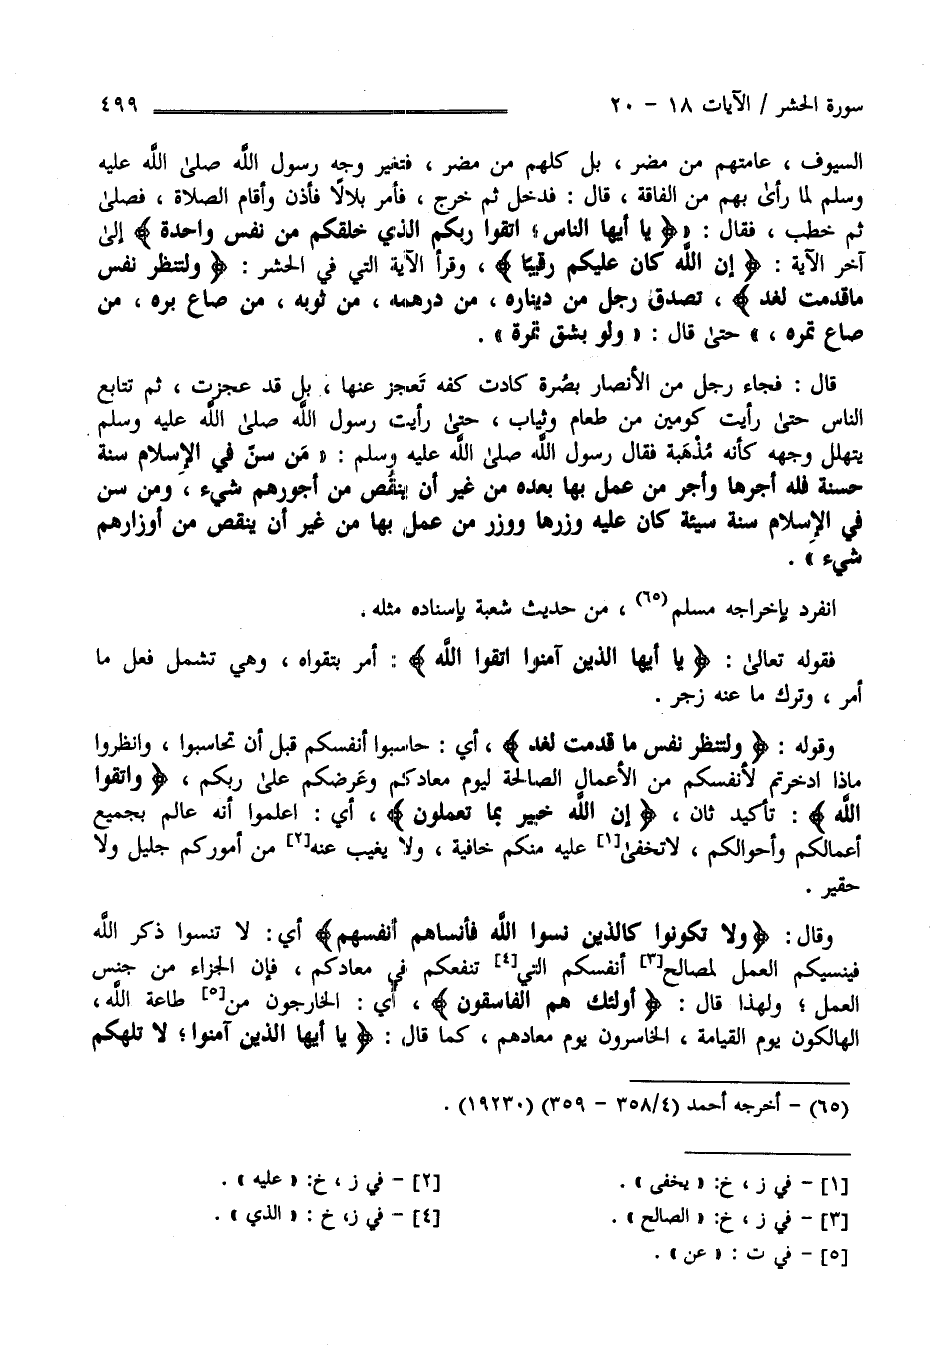 سورة الحشر / الآيات ١٨ - ٢٠
٤٩٩
السيوف ، عامتهم من مضر ، بل كلهم من مضر ، فتغير وجه رسول اللَّه صلىٰ اللَّه عليه
وسلم لما رأىٰ بهم من الفاقة ، قال : فدخل ثم خرج ، فأمر بلالًا فأذن وأقام الصلاة ، فصلىٰ
ثم خطب ، فقال : «﴿ يا أيها الناس؛ اتقوا ربكم الذي خلقكم من نفس واحدة ﴾ إلىٰ
آخر الآية : ﴿ إن اللَّه كان عليكم رقيبًا ﴾ ، وقرأ الآية التي في الحشر : ﴿ ولتنظر نفس
ماقدمت لغد ﴾ ، تصدق رجل من ديناره ، من درهمه ، من ثوبه ، من صاع بره ، من
صاع تمره ، » حتىٰ قال : « ولو بشق تمرة » .
قال : فجاء رجل من الأنصار بصُرة كادت كفه تَعجز عنها ، بل قد عجزت ، ثم تتابع
الناس حتىٰ رأيت كومين من طعام وثياب ، حتىٰ رأيت رسول اللَّه صلىٰ اللَّه عليه وسلم
يتهلل وجهه كأنه مُذْهَبة فقال رسول اللَّه صلىٰ اللَّه عليه وسلم : « مَن سنّ في الإسلام سنة
حسنة فله أجرها وأجر من عمل بها بعده من غير أن ينقُص من أجورهم شيء ، ومن سن
في الإسلام سنة سيئة كان عليه وزرها ووزر من عمل بها من غير أن ينقص من أوزارهم
شيء » .
انفرد بإخراجه مسلم(٦٥) ، من حديث شعبة بإسناده مثله .
فقوله تعالىٰ : ﴿ يا أيها الذين آمنوا اتقوا اللَّه ﴾ : أمر بتقواه ، وهي تشمل فعل ما
أمر ، وترك ما عنه زجر .
وقوله : ﴿ ولتنظر نفس ما قدمت لغد ﴾ ، أي : حاسبوا أنفسكم قبل أن تحاسبوا ، وانظروا
ماذا ادخرتم لأنفسكم من الأعمال الصالحة ليوم معادكم وعَرضكم علىٰ ربكم ، ﴿ واتقوا
اللَّه ﴾ : تأكيد ثان ، ﴿ إن اللَّه خبير بما تعملون ﴾ ، أي : اعلموا أنه عالم بجميع
أعمالكم وأحوالكم ، لاتخفىٰ[١] عليه منكم خافية ، ولا يغيب عنه[٢] من أموركم جليل ولا
حقير .
وقال: ﴿ولا تكونوا كالذين نسوا اللَّه فأنساهم أنفسهم﴾ أي: لا تنسوا ذكر اللَّه
فينسيكم العمل لمصالح[٣] أنفسكم التي[٤] تنفعكم في معادكم ، فإن الجزاء من جنس
العمل ؛ ولهذا قال : ﴿ أولئك هم الفاسقون ﴾ ، أي : الخارجون من[٥] طاعة اللَّه،
الهالكون يوم القيامة ، الخاسرون يوم معادهم ، كما قال : ﴿ يا أيها الذين آمنوا؛ لا تلهكم
(٦٥) - أخرجه أحمد (٣٥٨/٤ - ٣٥٩) (١٩٢٣٠) .
[١] - في ز ، خ: « يخفى » .
[٢] - في ز ، خ: « عليه » .
[٣] - في ز ، خ: « الصالح » .
[٤] - في ز، خ : « الذي » .
[٥] - في ت : « عن» .